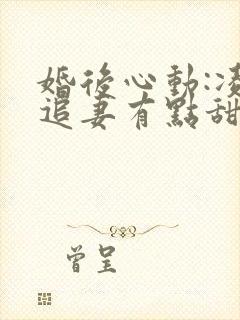 婚後心動:凌
追妻有點甜
曾呈